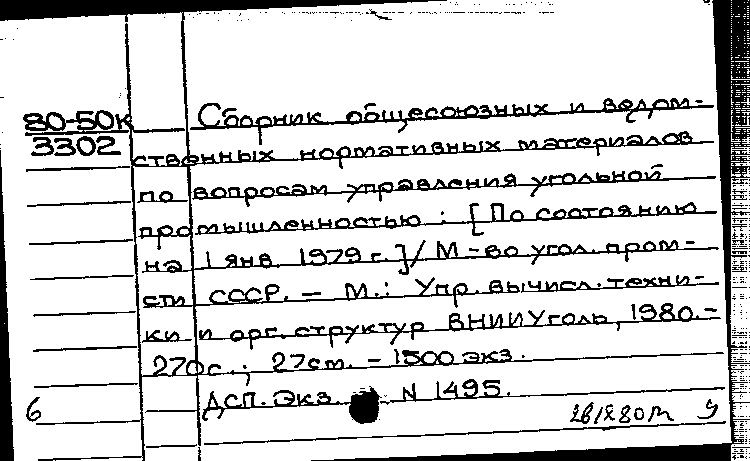 80-50к
3302
Сборник общесоюзных и ведом-
ственных нормативных материалов
по вопросам управления угольной
промышленностью : [По состоянию
на 1 янв. 1979 г.]/ М-во угол. пром-
сти СССР. – М.: Упр. вычисл. техни-
ки и орг. структур ВНИИУголь, 1980.-
270с.; 27см. – 1500 экз.
ДСП. Экз. N 1495.
6